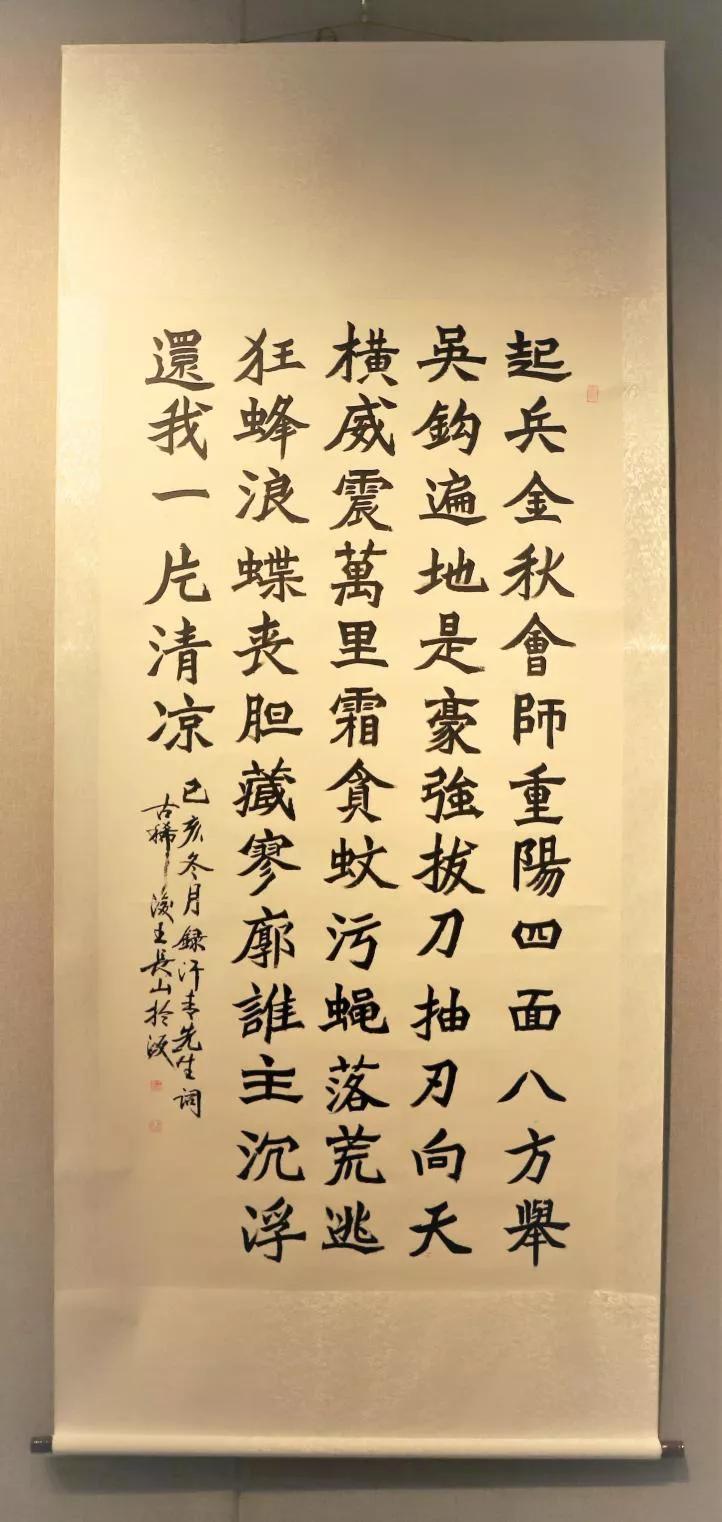 起兵金秋會師重陽四面八方舉
吳鈎遍地是豪強拔刀抽刃向天
橫威震萬里霜貪蚊污蝇落荒逃
狂蜂浪蝶丧胆藏寥廓誰主沉浮
還我一片清凉
己亥冬月録汗青先生词
古稀後王長山於